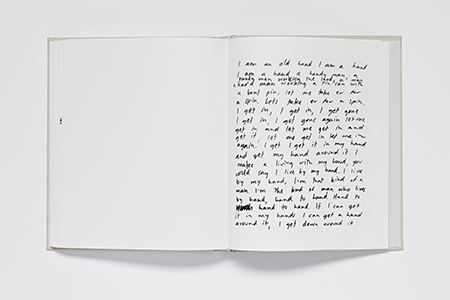 I am an old hand I am a hand
I am a hand a handy man, a
handy man working the land, a man
a hard man working a tin can with
a bent pin, let me take er for
a spin. Lets take er for a spin.
I get in, I get in, I get gone
I get in, I get gone again let me
get in and let me get in and
get it, let me get in let me in
again. I get I get it in my hand
and get my hand around it. I
make a living with my hand, you
could say I live by my hand. I live
by my hand, I'm that kind of a
man. I'm the kind of man who lives
by hand, hand to hand Hand to
hand to hand. If I can get
it in my hands I can get a hand
around it, I get down around it